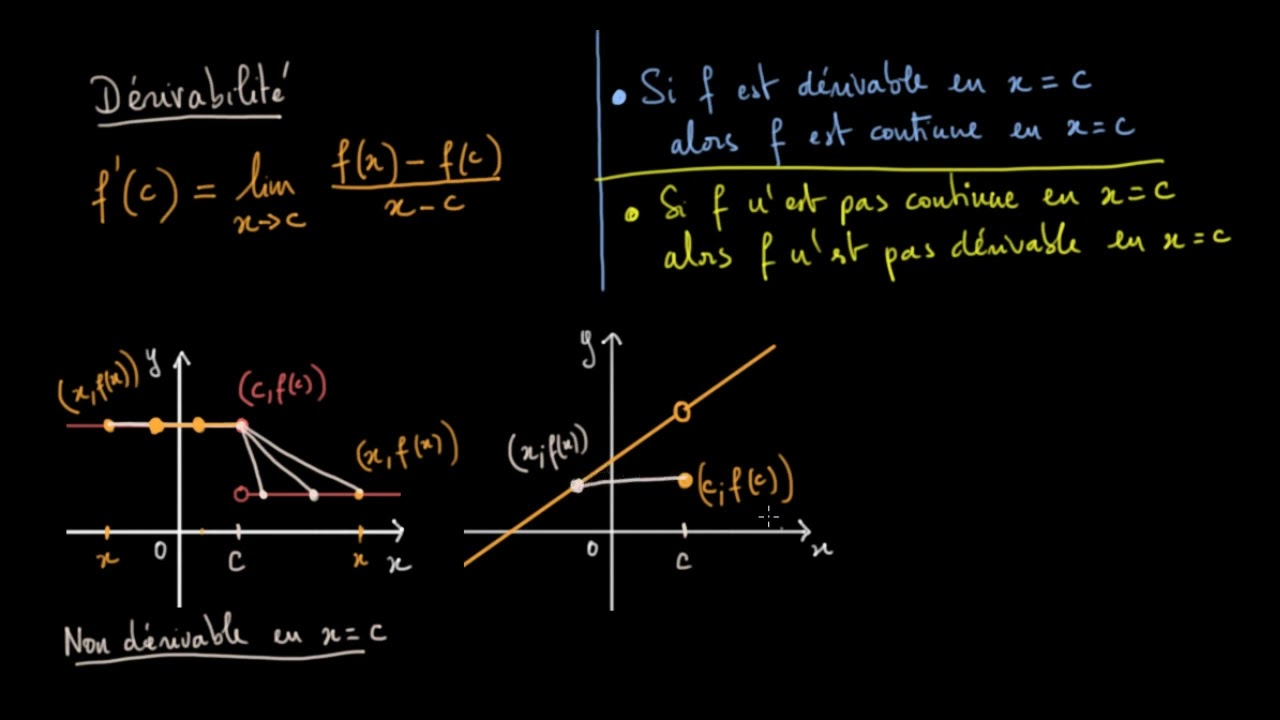 Dérivabilité
f'(c) = lim f(x) - f(c)
x→c x - c
• Si f est dérivable en x = c
alors f est continue en x = c
• Si f n'est pas continue en x = c
alors f n'est pas dérivable en x = c
(x, f(x))
y
(c, f(c))
(x, f(x))
x
0
c
x
x
Non dérivable en x = c
y
(x; f(x))
(c; f(c))
0
c
x